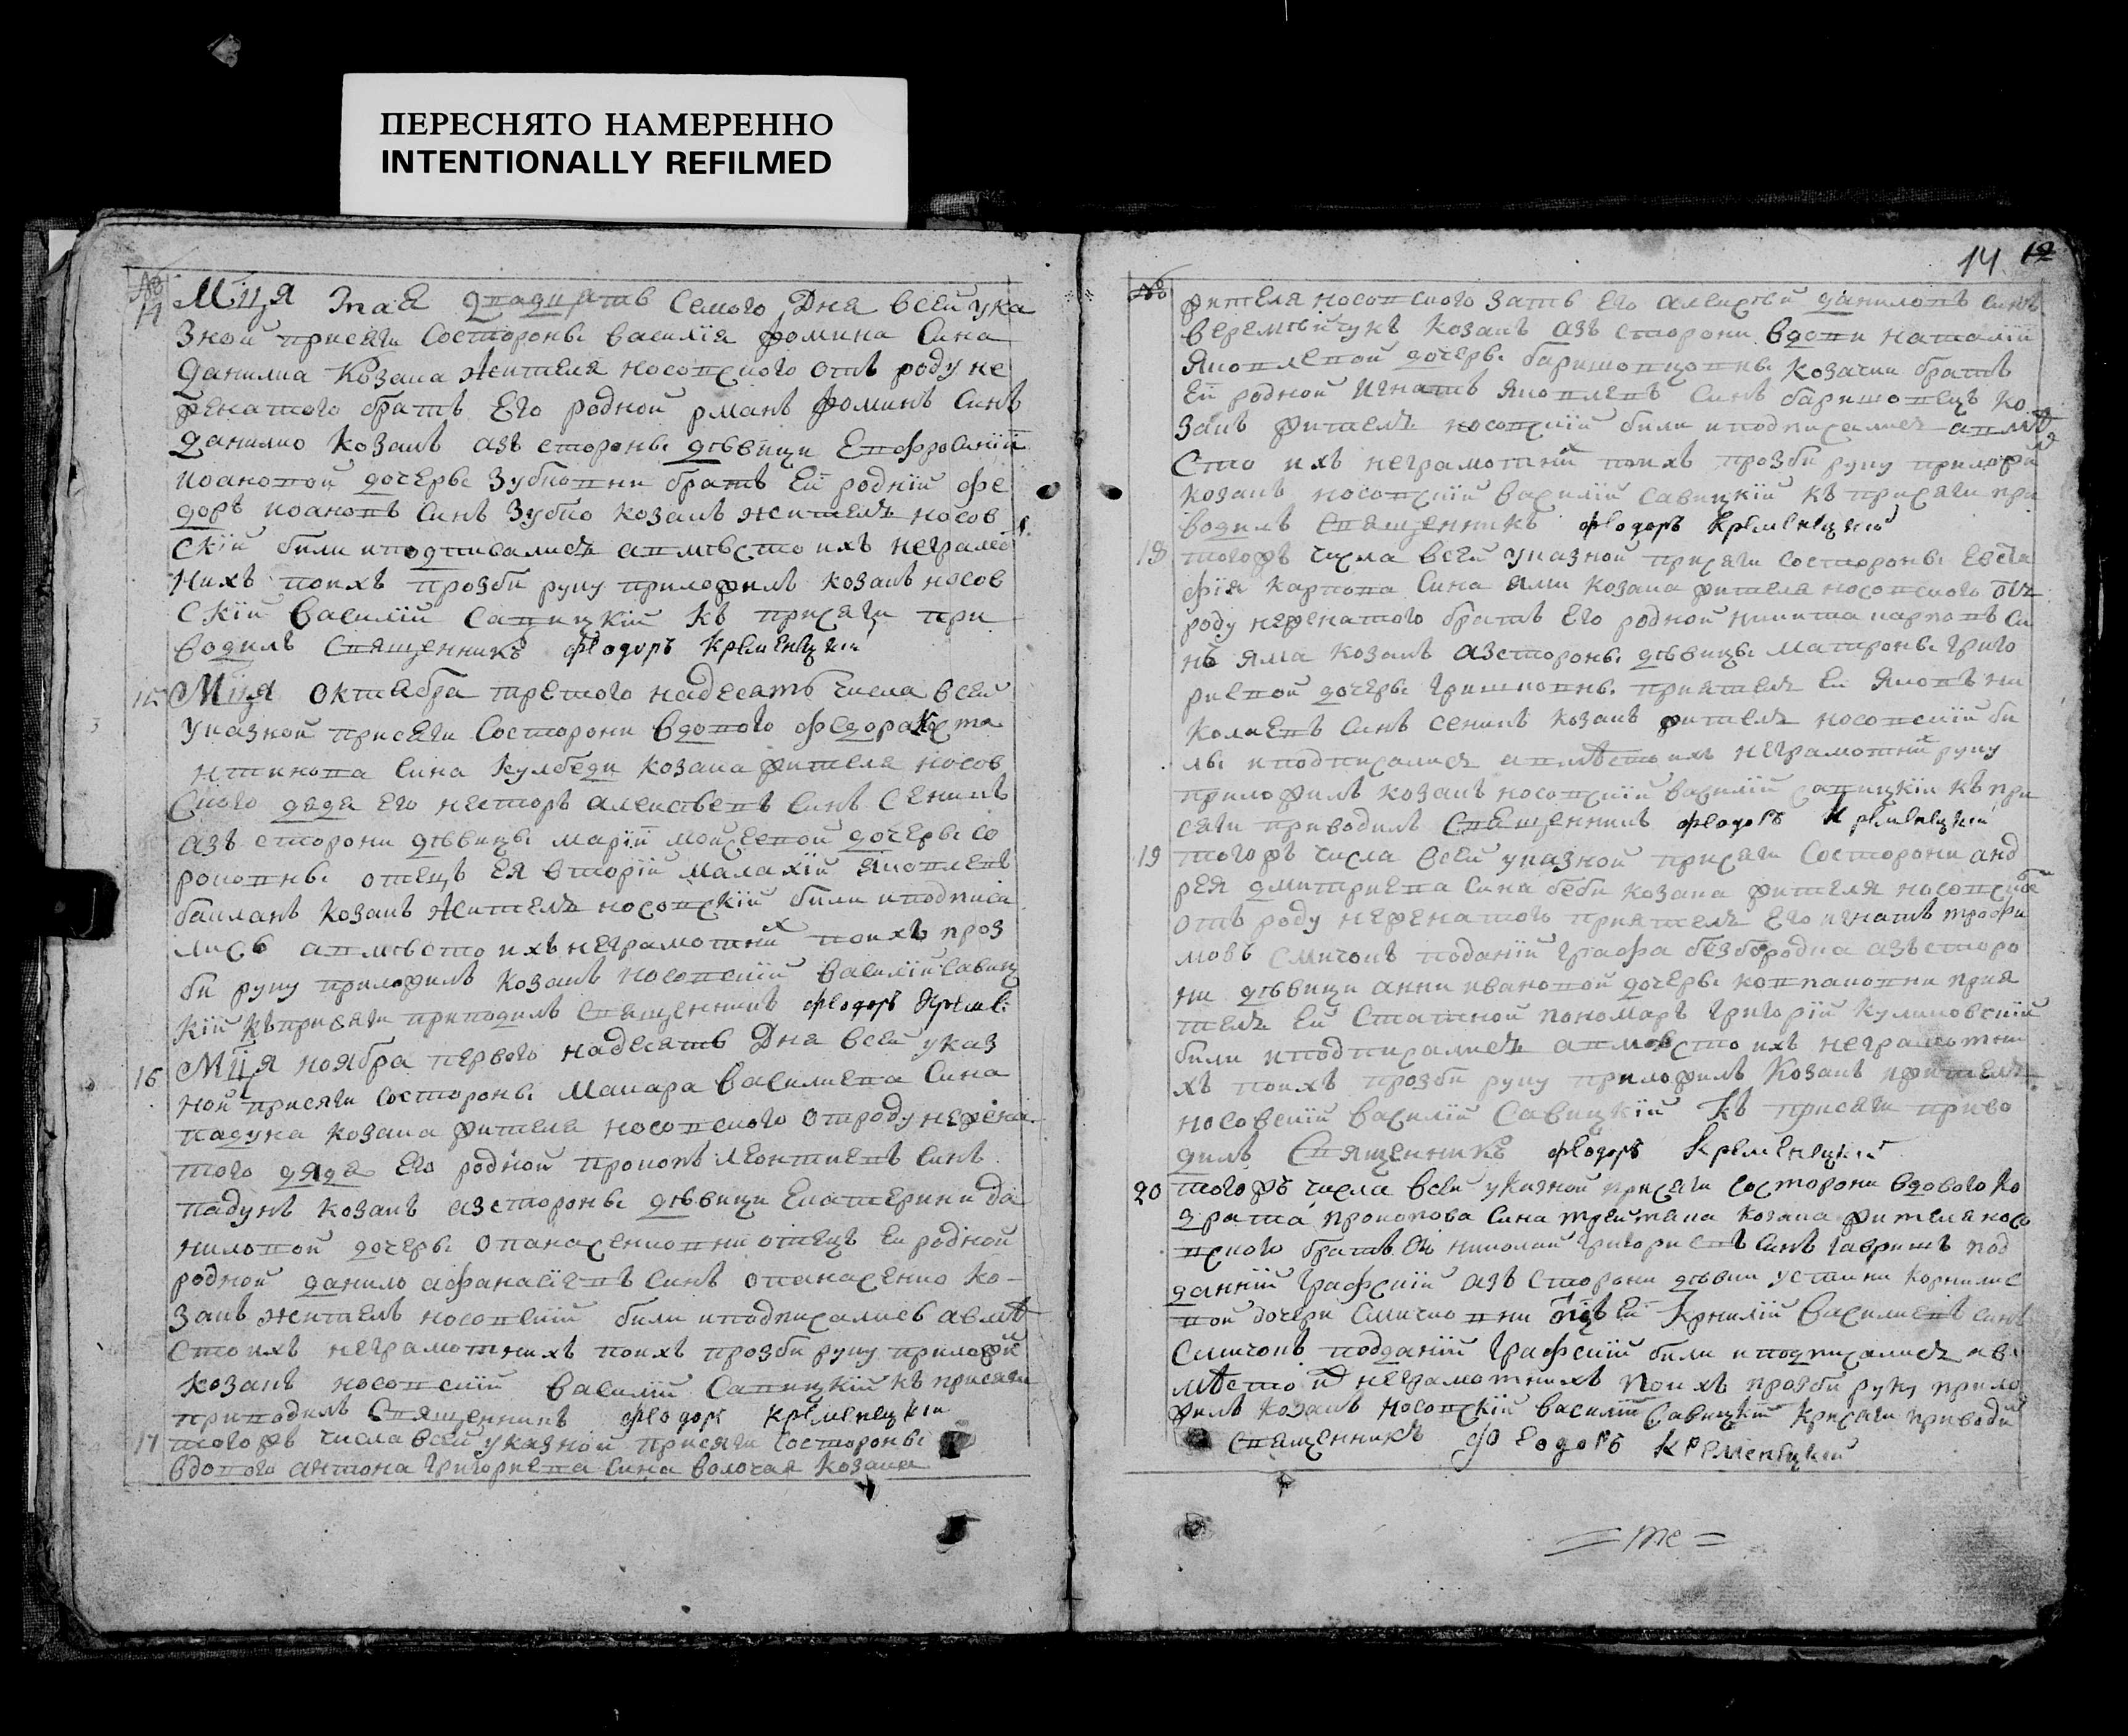 ПЕРЕСНЯТО НАМЕРЕННО
INTENTIONALLY REFILMED
№
14 Мця мая двадцать Семого Дня всей ука
зной присяги Состороны василїя фомина Сина
Данилка Козака жителя носовского отъ роду не
женатого братъ Его родной рманъ фоминъ Синъ
данилко козакъ азъ стороны дѣвици Епфросинїи
иоановой дочеры Зубковни братъ Ей роднїй фе
доръ иоановъ Синъ Зубко козакъ жителъ носов
скїй били иподписалися авмѣсто ихъ неграмо
нихъ поихъ прозби руку приложилъ козакъ носов
скїй василїй Савицкїй къ присяги при
водилъ Священникъ феодоръ кременецкїй
15 Мця октября третого надесять числа всей
указной присяги Состорони вдового федора
нтинова Сина кулбеди козака жителя носов
ского дядя его несторъ алексѣевъ Синъ Сеникъ
азъ сторони дѣвицы марїи мойсеевой дочеры со
роковны отецъ ея вторїй малахїй яковлевъ
бакланъ козакъ жителъ носовскїй били иподписа
лись авмѣсто ихъ неграмотнїх поихъ проз
би руку приложилъ козакъ носовскїй василїй савиц
кїй къприсяги приводилъ Священникъ феодоръ
16 Мця ноября первого надесять Дня всей указ
ной присяги Состороны Макара василиева Сина
падуна козака жителя носовского отроду нежена
того дядя Его родной прокопъ леонтиевъ Синъ
падунъ козакъ азстороны дѣвици Екатерини да
ниловой дочеры опанасенковни отецъ ей родной
родной данило афанасїевъ Синъ опанасенко ко-
закъ жителъ носовскїй били иподписалисъ авмѣ
сто ихъ неграмотнихъ поихъ прозби руку приложи
козакъ носовскїй василїй Савицкїй къ присяги
приводилъ Священникъ феодоръ кременецкїй
17 тогожъ числа всей указной присяги Состороны
вдового антона григориева Сина волочая козака
14 12
№
жителя носовского зять его алексѣй даниловъ синъ
веремѣйчукъ козакъ азъ сторони вдови наталїи
яковлевой дочеры баришовцовны козачки братъ
ей родной игнатъ яковлевъ Синъ баришовецъ ко
закъ жителъ носовскїй били иподписалися авмѣ
сто ихъ неграмотнїх поихъ прозби руку приложи
козакъ носовскїй василїй савицкїй къ присяги при
водилъ Священникъ феодоръ кременецкїй
18 тогожъ числа всей указной присяги Состороны Евста
фїя карпова Сина ями козака жителя носовского от
роду неженатого братъ Его родной никита карповъ Си
нъ яма козакъ азстороны дѣвицы матроны григо
риевой дочеры гришковны приятель ей яковъ ни
колаевъ Синъ сеникъ козакъ жителъ носовскїй би
лы иподписалися авмѣсто ихъ неграмотнїх руку
приложилъ козакъ носовскїй василїй савицкїй къ при
сяги приводилъ Священникъ феодоръ кременецкїй
19 тогожъ числа всей указной присяги Состорони анд
рея дмитриева Сина беби козака жителя носовско
отъ роду неженатого приятель Его игнатъ трофи
мовъ Смичокъ поданїй графа безбородка азъсторо
ни дѣвици анни ивановой дочеры ковпаковни прия
тель Ей Статной пономаръ григорїй куликовскїй
били иподписалися авмѣсто ихъ неграмотни
хъ поихъ прозби руку приложилъ козакъ жителъ
носовскїй василїй Савицкїй къ присяги приво
дилъ Священникъ феодоръ кременецкїй
20 тогожъ числа всей указной присяги Состорони вдового ко
зрата прокопова Сина козака жителя носо
вского братъ николай григориевъ Синъ гавришъ под
данній графскїй азъ сторони дѣвки устини корнилие
вой дочери Смичковни отцъ ей крнилїй василиевъ Синъ
Смичокъ подданїй графскїй били иподписалися ав
мѣсто неграмотнихъ поихъ прозби руку прило
жилъ козакъ носовскїй василїй Савицкїй крисяги приводи
Священникъ феодоръ кременецкїй